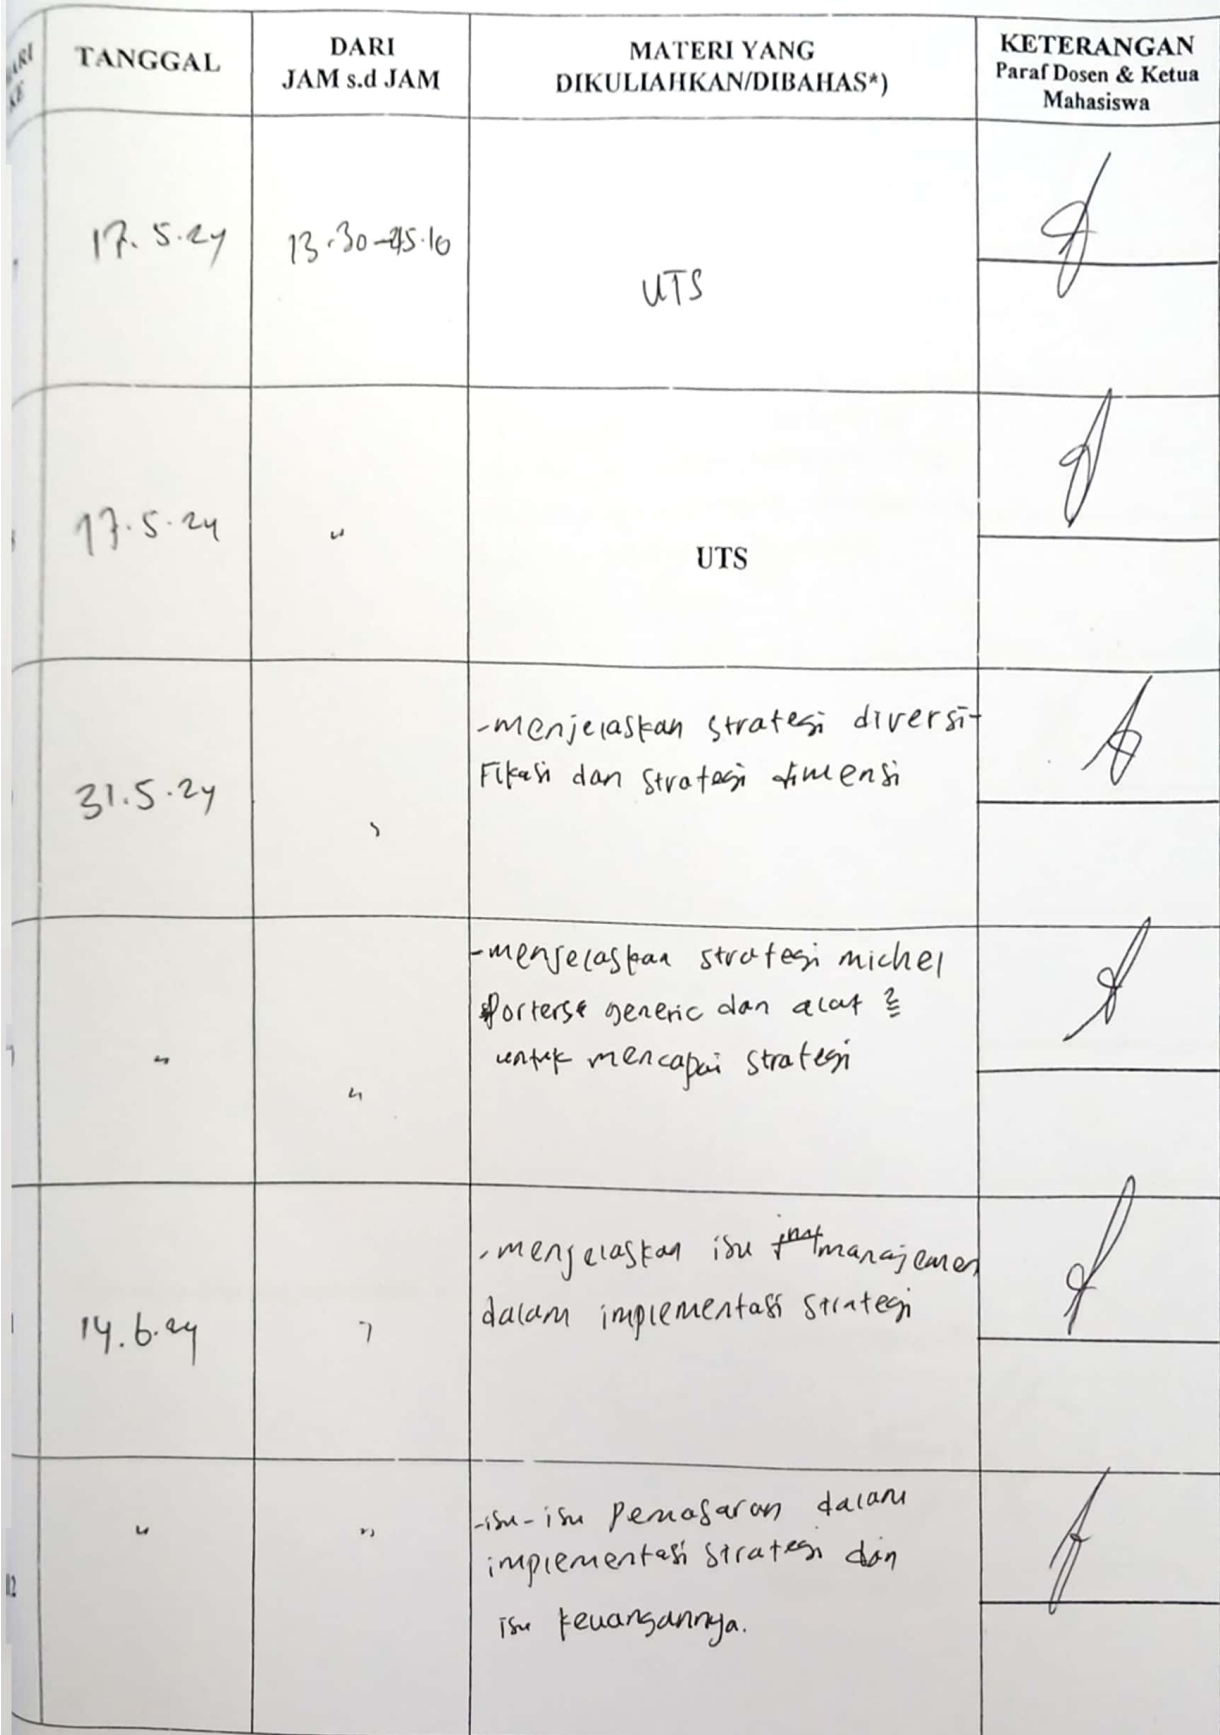 HARI
KE
TANGGAL
DARI
JAM s.d JAM
MATERI YANG
DIKULIAHKAN/DIBAHAS*)
KETERANGAN
Paraf Dosen & Ketua
Mahasiswa
17.5.24
13.30-15.10
UTS
17.5.24
"
UTS
31.5.24
"
-menjelaskan strategi diversi-
Fikasi dan strategi dimensi
"
"
-menjelaskan strategi michel
porters generic dan alat 2
untuk mencapai strategi
14.6.24
"
-menjelaskan isu manajemen
dalam implementasi strategi
12
"
"
-isu-isu Pemasaran dalam
implementasi strategi dan
isu keuangannya.